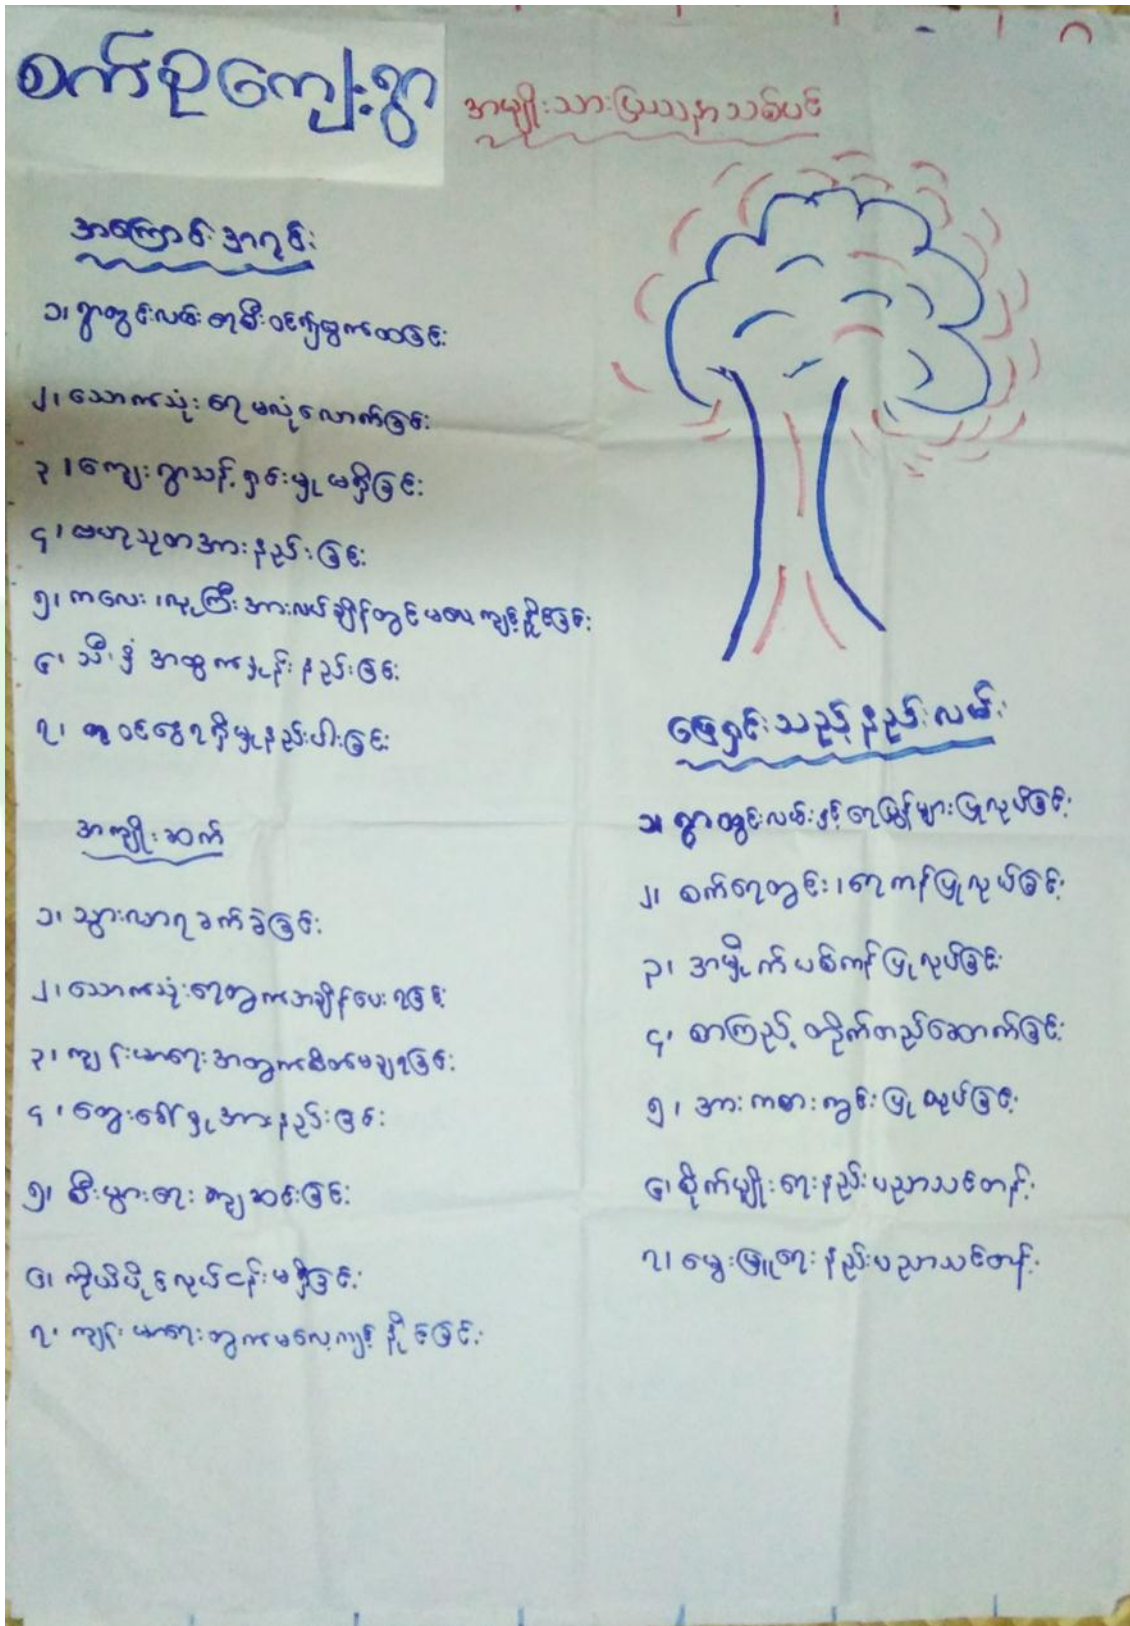 စက်စုကျေးရွာ
အမျိုးသားပြဿနာသစ်ပင်
အကြောင်းအရင်း
၁၊ ရွာတွင်းလမ်း
၂၊ သောက်သုံးရေမလုံလောက်ခြင်း
၃၊ ကျေးရွာသန့်ရှင်းမှုမရှိခြင်း
၄၊ ဗဟုသုတအားနည်းခြင်း
၅၊ ကလေး၊ လူကြီးအားလပ်ချိန်တွင်မလေ့ကျင့်နိုင်ခြင်း
၆၊ သီးနှံအထွက်နှုန်းနည်းခြင်း
၇၊ ဝင်ငွေရရှိမှုနည်းပါးခြင်း
အကျိုးဆက်
၁၊ သွားလာရခက်ခဲခြင်း
၂၊ သောက်သုံးရေတွက်အချိန်ပေးရခြင်း
၃၊ ကျန်းမာရေးအတွက်စိတ်မချရခြင်း
၄၊ တွေးခေါ်မှုအားနည်းခြင်း
၅၊ စီးပွားရေးကျဆင်းခြင်း
၆၊ ကိုယ်ပိုင်လုပ်ငန်းမရှိခြင်း
၇၊ ကျန်းမာရေးတွက်မလေ့ကျင့်နိုင်ခြင်း
ဖြေရှင်းသည့်နည်းလမ်း
၁၊ ရွာတွင်းလမ်းနှင့်ရေမြောင်းများပြုလုပ်ခြင်း
၂၊ စက်ရေတွင်း၊ ရေကန်ပြုလုပ်ခြင်း
၃၊ အမှိုက်ပစ်ကန်ပြုလုပ်ခြင်း
၄၊ စာကြည့်တိုက်တည်ဆောက်ခြင်း
၅၊ အားကစားကွင်းပြုလုပ်ခြင်း
၆၊ စိုက်ပျိုးရေးနည်းပညာသင်တန်း
၇၊ မွေးမြူရေးနည်းပညာသင်တန်း